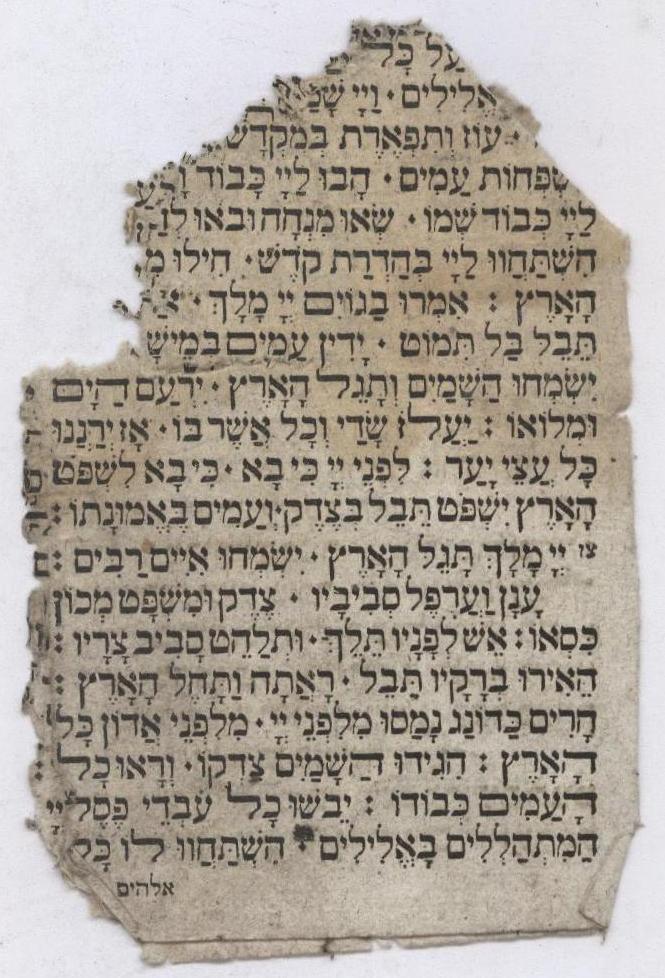 עַל כָּל
אֱלִילִים · וַיְיָ
עוֹז וְתִפְאֶרֶת בְּמִקְדָּשׁ
מִשְׁפְּחוֹת עַמִּים · הָבוּ לַייָ כָּבוֹד וָעֹ
לַייָ כְּבוֹד שְׁמוֹ · שְׂאוּ מִנְחָה וּבֹאוּ
הִשְׁתַּחֲווּ לַייָ בְּהַדְרַת קֹדֶשׁ · חִילוּ
הָאָרֶץ : אִמְרוּ בַגּוֹיִם יְיָ מָלָךְ ·
תֵּבֵל בַּל תִּמּוֹט · יָדִין עַמִּים בְּמֵישָׁ
יִשְׂמְחוּ הַשָּׁמַיִם וְתָגֵל הָאָרֶץ · יִרְעַם הַיָּם
וּמְלוֹאוֹ : יַעֲלֹז שָׂדַי וְכָל אֲשֶׁר בּוֹ · אָז יְרַנְּנוּ
כָּל עֲצֵי יָעַר : לִפְנֵי יְיָ כִּי בָא · כִּי בָא לִשְׁפֹּט
הָאָרֶץ יִשְׁפֹּט תֵּבֵל בְּצֶדֶק · וְעַמִּים בֶּאֱמוּנָתוֹ :
צז יְיָ מָלָךְ תָּגֵל הָאָרֶץ · יִשְׂמְחוּ אִיִּים רַבִּים :
עָנָן וַעֲרָפֶל סְבִיבָיו · צֶדֶק וּמִשְׁפָּט מְכוֹן
כִּסְאוֹ : אֵשׁ לְפָנָיו תֵּלֵךְ · וּתְלַהֵט סָבִיב צָרָיו :
הֵאִירוּ בְרָקָיו תֵּבֵל · רָאֲתָה וַתָּחֵל הָאָרֶץ :
הָרִים כַּדּוֹנַג נָמַסּוּ מִלִּפְנֵי יְיָ · מִלִּפְנֵי אֲדוֹן כָּל
הָאָרֶץ : הִגִּידוּ הַשָּׁמַיִם צִדְקוֹ · וְרָאוּ כָל
הָעַמִּים כְּבוֹדוֹ : יֵבֹשׁוּ כָל עֹבְדֵי פֶסֶל
הַמִּתְהַלְלִים בָּאֱלִילִים · הִשְׁתַּחֲווּ לוֹ כָּל
אלהים